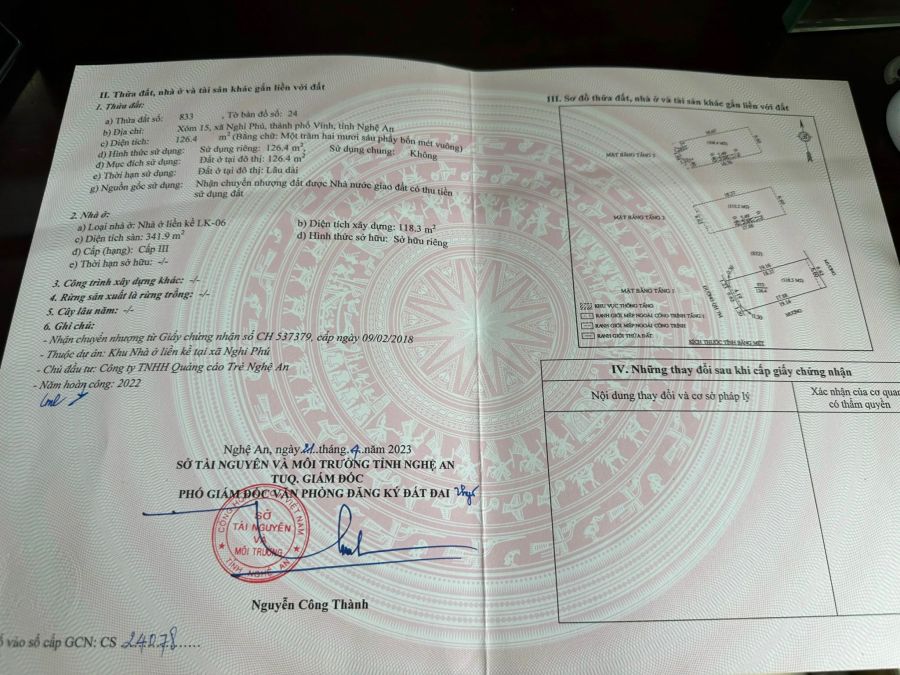 II. Thửa đất, nhà ở và tài sản khác gắn liền với đất
1. Thửa đất:
a) Thửa đất số: 833 , Tờ bản đồ số: 24
b) Địa chỉ: Xóm 15, xã Nghi Phú, thành phố Vinh, tỉnh Nghệ An
c) Diện tích: 126.4 m² (Bằng chữ: Một trăm hai mươi sáu phẩy bốn mét vuông)
d) Hình thức sử dụng: Sử dụng riêng: 126.4 m², Sử dụng chung: Không
đ) Mục đích sử dụng: Đất ở tại đô thị: 126.4 m²
e) Thời hạn sử dụng: Đất ở tại đô thị: Lâu dài
g) Nguồn gốc sử dụng: Nhận chuyển nhượng đất được Nhà nước giao đất có thu tiền
sử dụng đất
2. Nhà ở:
a) Loại nhà ở: Nhà ở liền kề LK-06
b) Diện tích xây dựng: 118.3 m²
c) Diện tích sàn: 341.9 m²
d) Hình thức sở hữu: Sở hữu riêng
đ) Cấp (hạng): Cấp III
e) Thời hạn sở hữu: -/-
3. Công trình xây dựng khác: -/-
4. Rừng sản xuất là rừng trồng: -/-
5. Cây lâu năm: -/-
6. Ghi chú:
- Nhận chuyển nhượng từ Giấy chứng nhận số CH 537379, cấp ngày 09/02/2018
- Thuộc dự án: Khu Nhà ở liền kề tại xã Nghi Phú
- Chủ đầu tư: Công ty TNHH Quảng cáo Trẻ Nghệ An
- Năm hoàn công: 2022
Nghệ An, ngày 21 tháng 4 năm 2023
SỞ TÀI NGUYÊN VÀ MÔI TRƯỜNG TỈNH NGHỆ AN
TUQ. GIÁM ĐỐC
PHÓ GIÁM ĐỐC VĂN PHÒNG ĐĂNG KÝ ĐẤT ĐAI
SỞ
TÀI NGUYÊN
VÀ
MÔI TRƯỜNG
TỈNH NGHỆ AN
Nguyễn Công Thành
vào sổ cấp GCN: CS 24078
III. Sơ đồ thửa đất, nhà ở và tài sản khác gắn liền với đất
MẶT BẰNG TẦNG 3
MẶT BẰNG TẦNG 2
MẶT BẰNG TẦNG 1
MƯƠNG
MƯƠNG
KHU VỰC THÔNG TẦNG
RANH GIỚI MÉP NGOÀI CÔNG TRÌNH TẦNG 1
RANH GIỚI MÉP NGOÀI CÔNG TRÌNH
RANH GIỚI THỬA ĐẤT
KÍCH THƯỚC TÍNH BẰNG MÉT
IV. Những thay đổi sau khi cấp giấy chứng nhận
Nội dung thay đổi và cơ sở pháp lý
Xác nhận của cơ quan
có thẩm quyền